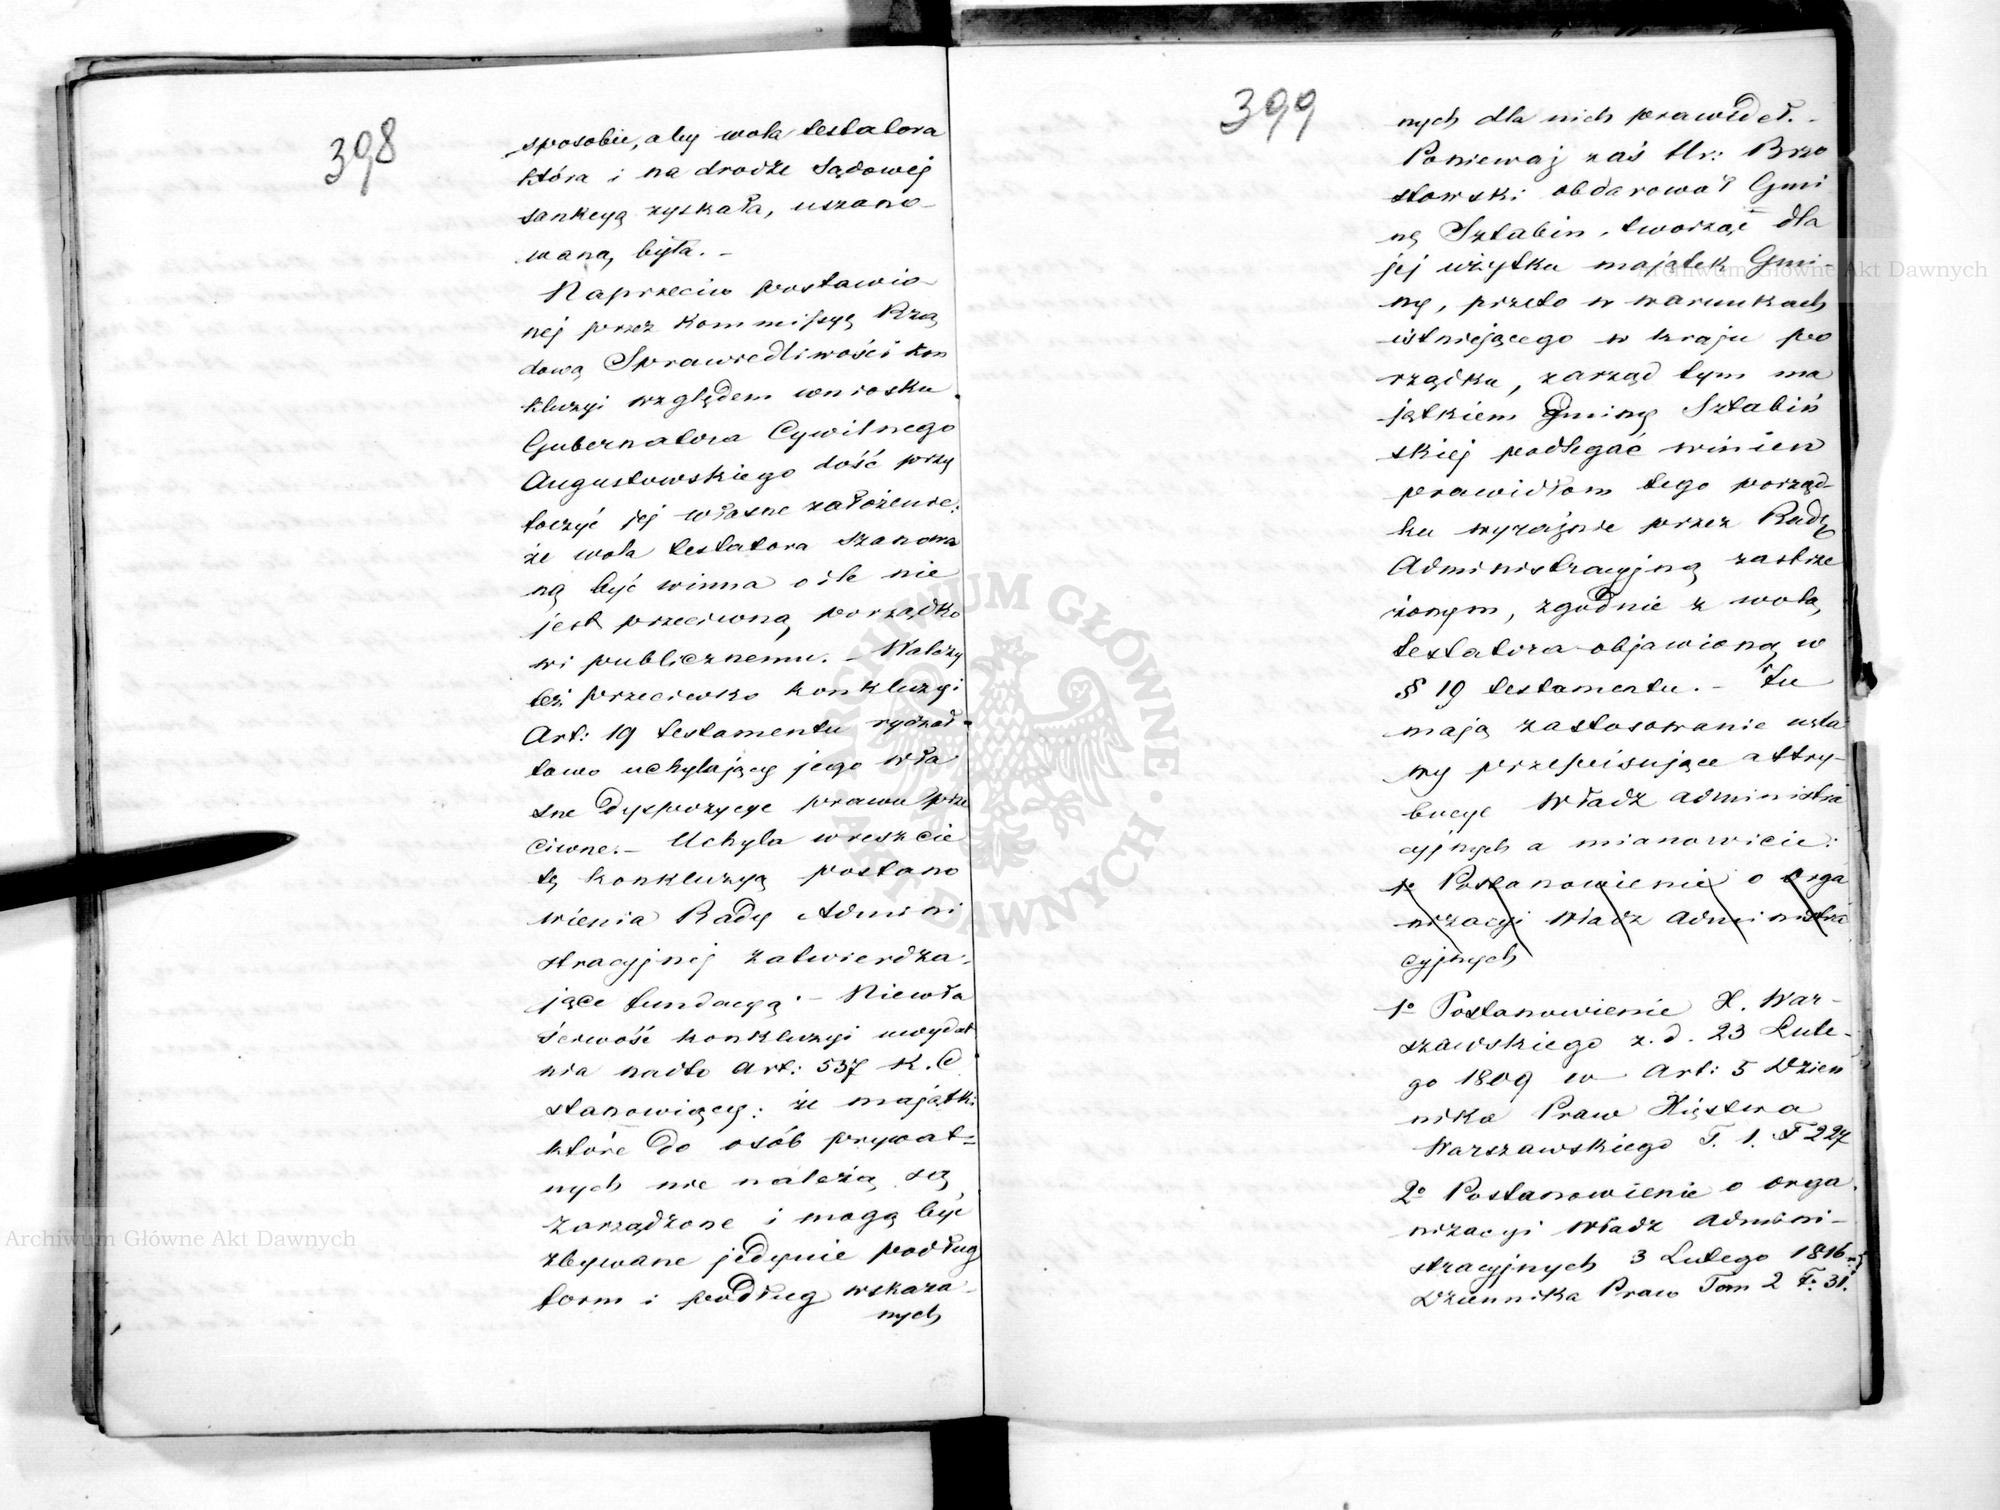 398
sposobie, aby wola testatora
która i na drodze Sądowej
sankcyą zyskała, uszano-
waną była. -
Naprzeciw postawio-
nej przez Kommissyę Rzą
dową Sprawiedliwości kon
kluzyi względem wniosku
Gubernatora Cywilnego
Augustowskiego dość przy
toczyć jej własne założenie:
że wola testatora szanowa
ną być winna o ile nie
jest przeciwną porządko
wi publicznemu. - Walczy
też przeciwko konkluzyi
Art: 19 testamentu ryczał-
towo uchylający jego wła
sne dyspozycye prawu prze
ciwne. - Uchyla wreszcie
tę konkluzyą postano
wienia Rady Admini
stracyjnej zatwierdza-
jące fundacyą. - Niewła
ściwość konkluzyi uwydat
nia nadto Art: 537 K. C.
stanowiący: że majątki
które do osób prywat=
nych nie należą są
zarządzone i mogą być
zbywane jedynie podług
form i podług wskaza-
nych
399
nych dla nich prawideł. -
Ponieważ zaś Hr: Brzo
stowski obdarował Gmi
nę Sztabin, tworząc dla
jej użytku majątek Gmi-
ny, przeto w warunkach
istniejącego w kraju po
rządku, zarząd tym ma
jątkiem Gminy Sztabiń
skiej podlegać winien
prawidłom tego porząd-
ku wyraźnie przez Radę
Administracyjną zastrze
żonym, zgodnie z wolą
testatora objawioną w
§ 19 testamentu. - Tu
mają zastosowanie usta
wy przepisujące attry-
bucye Władz administra
cyjnych a mianowicie:
1o Postanowienie o orga
nizacyi Władz Administra
cyjnych
1o Postanowienie X. War-
szawskiego z. d. 23 Lute-
go 1809 w Art: 5 Dzien
nika Praw Xięstwa
Warszawskiego T. 1. F 227
2o Postanowienie o orga
nizacyi Władz Admini-
stracyjnych 3 Lutego 1816
Dziennika Praw Tom 2 F: 31.
ARCHIWUM GŁÓWNE
AKT DAWNYCH
Archiwum Główne Akt Dawnych
Archiwum Główne Akt Dawnych